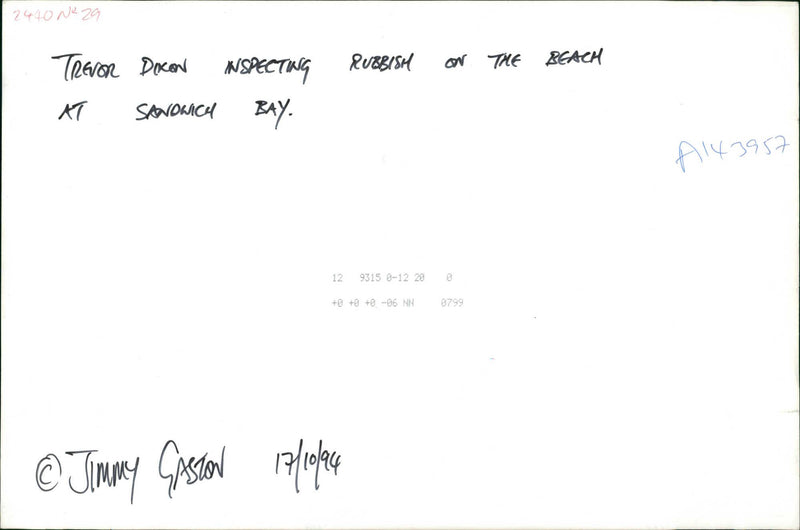 2470 Nº 29
TREVOR DIXON INSPECTING RUBBISH ON THE BEACH
AT SANDWICH BAY.
A143957
12 9315 0-12 20 0
+0 +0 +0 -06 NN 0799
© JIMMY GASTON 17/10/94